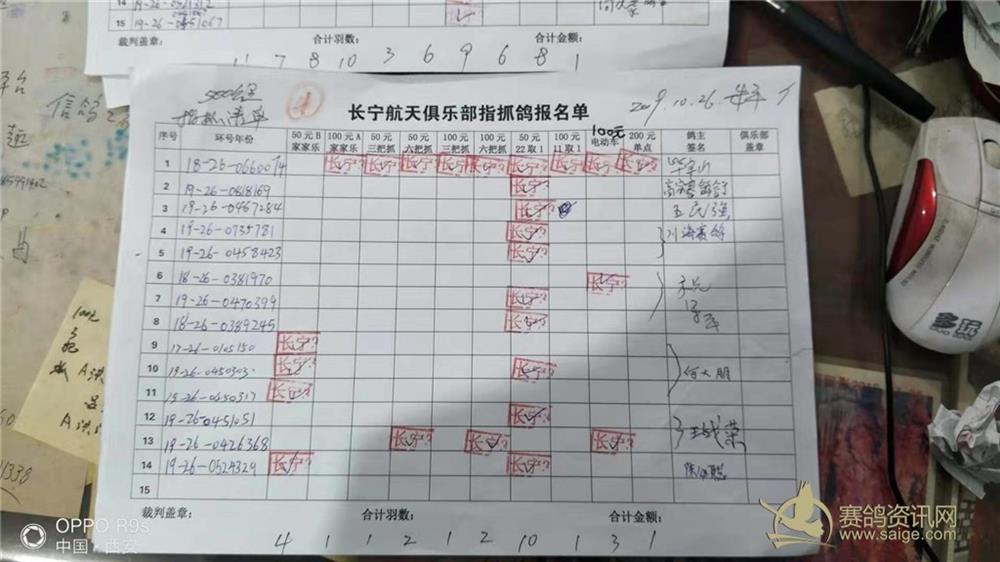 14 19-26-0521212
15 19-26-0451067
裁判盖章: 合计羽数: 合计金额:
11 7 8 10 3 6 9 6 8 1
500公里
指抓清单
长宁航天俱乐部指抓鸽报名单
2019.10.26.
信鸽
100元
序号 环号年份 50元B家家乐 100元A家家乐 50元三把抓 50元六把抓 100元三把抓 100元六把抓 50元22取1 100元11取1 100元电动车 200元单点 鸽主签名 俱乐部盖章
1 18-26-0660074 长宁 长宁 长宁 长宁 长宁 长宁 长宁 长宁 长宁
2 19-26-0818169 长宁
3 19-26-0467284 长宁 王民强
4 19-26-0735781 长宁 川海赛鸽
5 19-26-0458423 长宁
6 18-26-0381970 长宁
7 19-26-0470399 长宁
8 18-26-0389245 长宁
9 17-26-0105150 长宁
10 19-26-0450303 长宁 长宁 何大朋
11 19-26-0450317 长宁
12 19-26-0451051 长宁
13 19-26-0426368 长宁 长宁 长宁 王战荣
14 19-26-0524329 长宁 长宁
15
裁判盖章: 合计羽数: 合计金额:
4 1 1 2 1 2 10 1 3 1
1338
多玩
OPPO R9s
中国·西安
赛鸽资讯网
www.saige.com